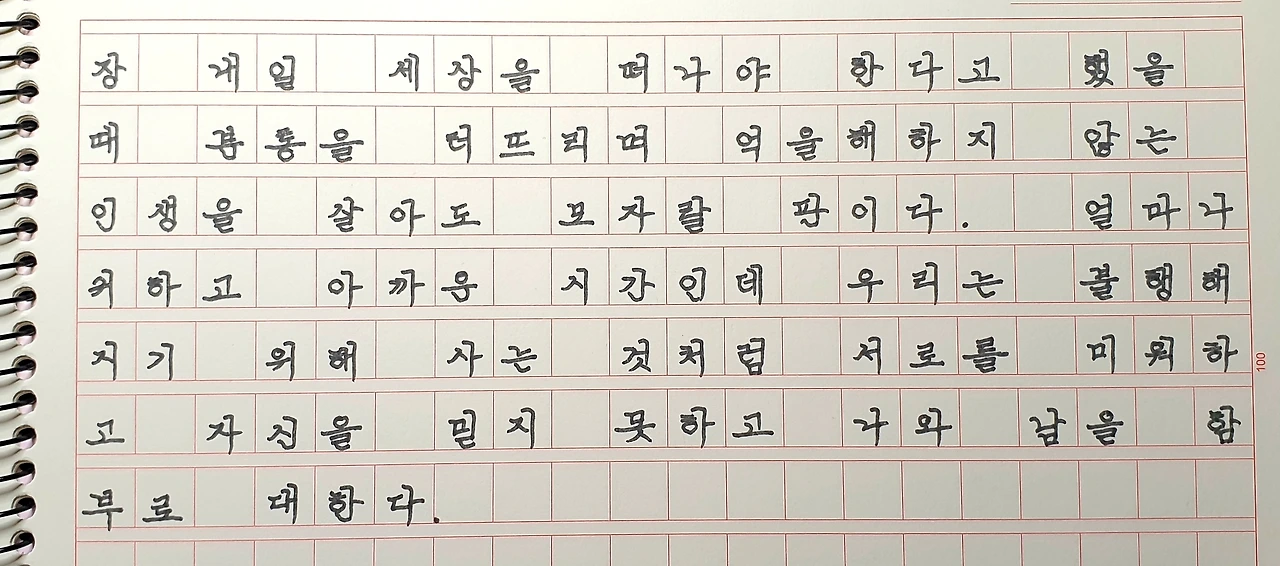 장 내일 세상을 떠나야 한다고 했을
때 분통을 터뜨리며 억울해하지 않는
인생을 살아도 모자랄 판이다. 얼마나
귀하고 아까운 시간인데 우리는 불행해
지기 위해 사는 것처럼 서로를 미워하
고 자신을 믿지 못하고 나와 남을 함
부로 대한다.
100